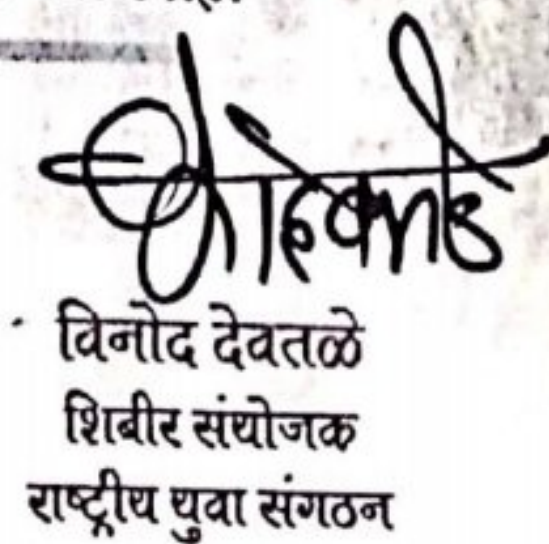 विनोद देवतळे
शिबीर संयोजक
राष्ट्रीय युवा संगठन